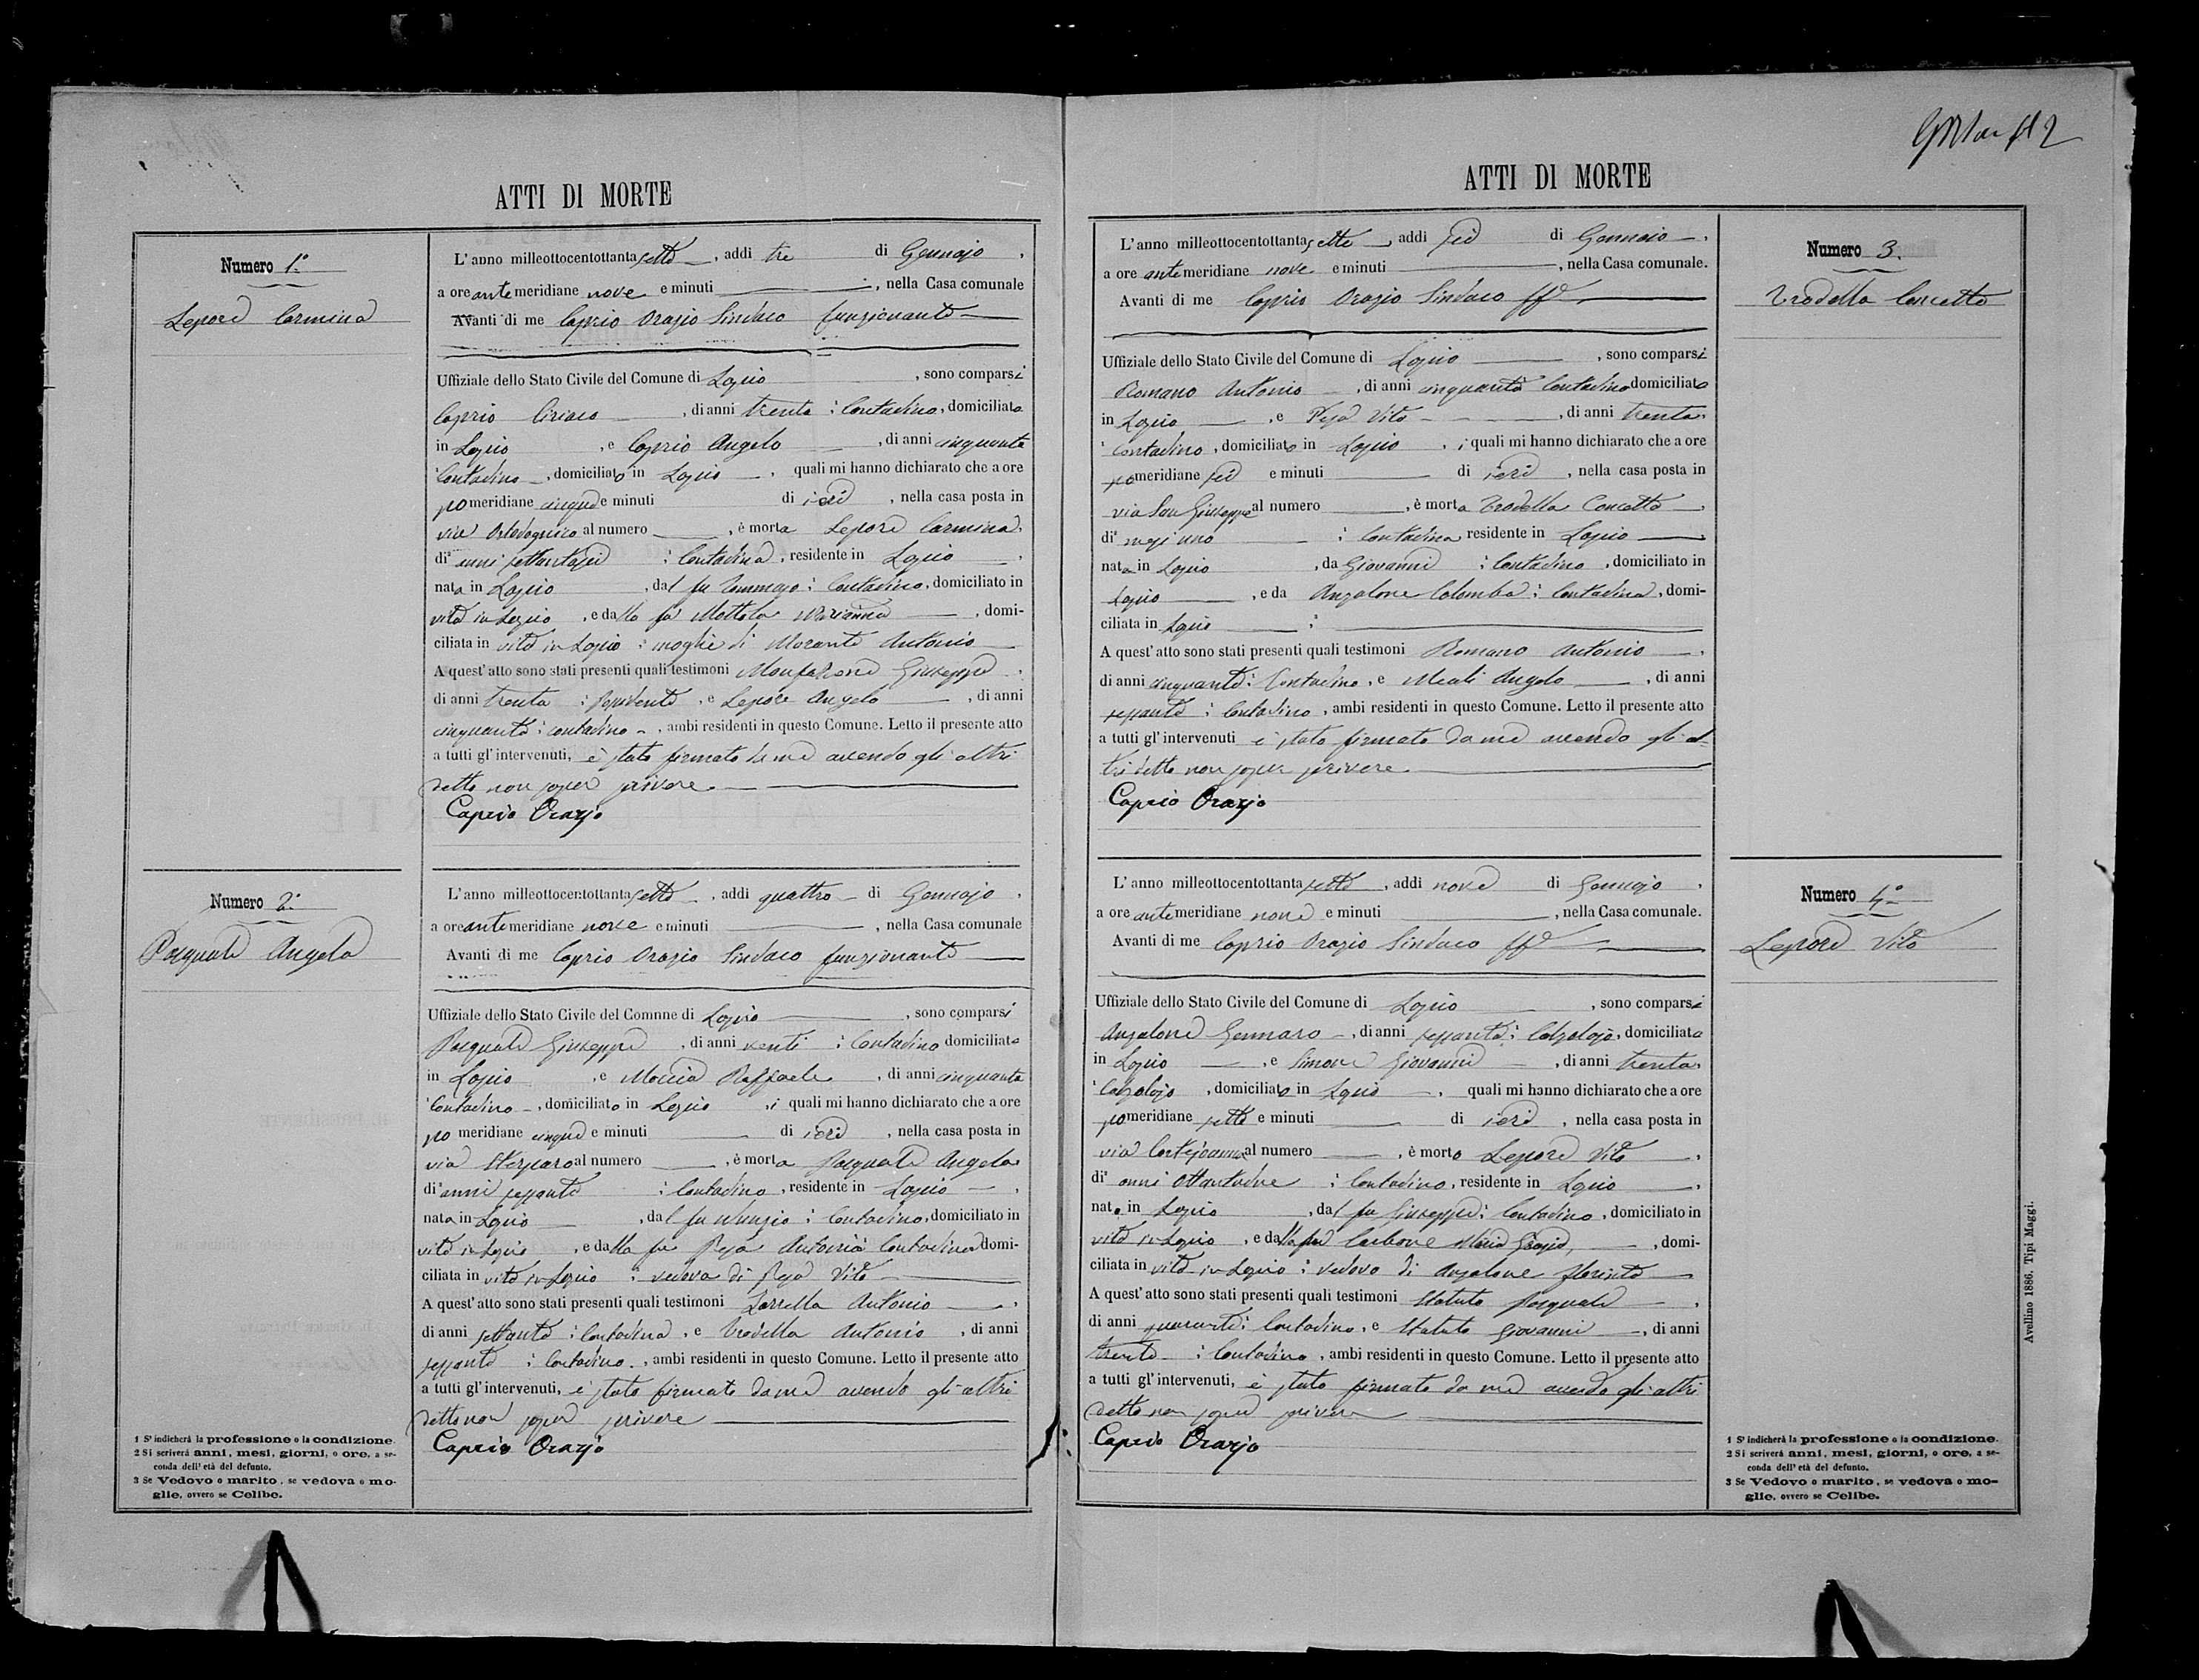 ATTI DI MORTE
Numero 1°
Lepore Carmina
L'anno milleottocentottantasette, addi tre di Gennajo,
a ore antemeridiane nove e minuti , nella Casa comunale
Avanti di me Caprio Orazio Sindaco funzionante
Uffiziale dello Stato Civile del Comune di Lapio , sono comparsi
Caprio Ciriaco , di anni trenta : Contadino, domiciliato
in Lapio , e Caprio Angelo , di anni cinquanta
Contadino , domiciliato in Lapio , quali mi hanno dichiarato che a ore
pomeridiane cinque e minuti di ieri , nella casa posta in
via al numero , è morta Lepore Carmina,
di anni settantasei : Contadina, residente in Lapio ,
nata in Lapio , dal fu Tommaso : Contadino, domiciliato in
vita in Lapio , e dalla fu Mottola Marianna , domi-
ciliata in vita in Lapio : moglie di Morante Antonio
A quest'atto sono stati presenti quali testimoni Giuseppe ,
di anni trenta : , e Lepore Angelo , di anni
cinquanta : contadino , ambi residenti in questo Comune. Letto il presente atto
a tutti gl'intervenuti, è stato firmato da me avendo gli altri
detto non saper scrivere
Caprio Orazio
Numero 2°
Pasquale Angela
L'anno milleottocentottantasette , addi quattro di Gennajo ,
a ore antemeridiane nove e minuti , nella Casa comunale
Avanti di me Caprio Orazio Sindaco funzionante
Uffiziale dello Stato Civile del Comnne di Lapio , sono comparsi
Pasquale Giuseppe , di anni venti : Contadino domiciliato
in Lapio , e Moccia Raffaele , di anni cinquanta
Contadino , domiciliato in Lapio , i quali mi hanno dichiarato che a ore
po meridiane cinque e minuti di ieri , nella casa posta in
via al numero , è morta Pasquale Angela
di anni sessanta : Contadina , residente in Lapio ,
nata in Lapio , dal fu Nunzio : Contadino, domiciliato in
vita in Lapio , e dalla fu Antonia Contadina domi-
ciliata in vita in Lapio : vedova di Vito
A quest'atto sono stati presenti quali testimoni Antonio ,
di anni settanta : Contadino , e Trodella Antonio , di anni
sessanta : Contadino , ambi residenti in questo Comune. Letto il presente atto
a tutti gl'intervenuti, è stato firmato da me avendo gli altri
detto non saper scrivere
Caprio Orazio
1 S'indicherà la professione o la condizione.
2 Si scriverà anni, mesi, giorni, o ore, a se-
conda dell'età del defunto.
3 Se Vedovo o marito, se vedova o mo-
glie, ovvero se Celibe.
ATTI DI MORTE
L'anno milleottocentottantasette , addi sei di Gennaio ,
a ore antemeridiane nove e minuti , nella Casa comunale.
Avanti di me Caprio Orazio Sindaco ff
Uffiziale dello Stato Civile del Comune di Lapio , sono comparsi
Romano Antonio , di anni cinquanta Contadino domiciliato
in Lapio , e Vito , di anni trenta,
Contadino , domiciliato in Lapio , i quali mi hanno dichiarato che a ore
pomeridiane sei e minuti di ieri , nella casa posta in
via San Giuseppe al numero , è morta Trodella Concetta ,
di mesi uno : Contadina residente in Lapio ,
nata in Lapio , da Giovanni : Contadino , domiciliato in
Lapio , e da Anzalone Colomba : Contadina, domi-
ciliata in Lapio :
A quest'atto sono stati presenti quali testimoni Romano Antonio ,
di anni cinquanta : Contadino , e Meoli Angelo , di anni
sessanta : Contadino , ambi residenti in questo Comune. Letto il presente atto
a tutti gl'intervenuti è stato firmato da me avendo gli al-
tri detto non saper scrivere
Caprio Orazio
Numero 3.
Trodella Concetta
L'anno milleottocentottantasette , addi nove di Gennajo ,
a ore antemeridiane nove e minuti , nella Casa comunale.
Avanti di me Caprio Orazio Sindaco ff
Uffiziale dello Stato Civile del Comune di Lapio , sono comparsi
Anzalone Gennaro , di anni sessanta : Calzolajo, domiciliato
in Lapio , e Simone Giovanni , di anni trenta,
Calzolajo , domiciliato in Lapio , quali mi hanno dichiarato che a ore
pomeridiane sette e minuti di ieri , nella casa posta in
via al numero , è morto Lepore Vito ,
di anni Ottantadue : Contadino, residente in Lapio ,
nato in Lapio , dal fu Giuseppe : Contadino , domiciliato in
vita in Lapio , e dalla fu Carbone Maria Grazia, , domi-
ciliata in vita in Lapio : vedovo di Anzalone
A quest'atto sono stati presenti quali testimoni Statuto Pasquale ,
di anni quaranta : Contadino , e Statuto Giovanni , di anni
trenta : Contadino , ambi residenti in questo Comune. Letto il presente atto
a tutti gl'intervenuti, è stato firmato da me avendo gli altri
detto non saper scrivere
Caprio Orazio
Numero 4°
Lepore Vito
1 S'indicherà la professione o la condizione.
2 Si scriverà anni, mesi, giorni, o ore, a se-
conda dell'età del defunto.
3 Se Vedovo o marito, se vedova o mo-
glie, ovvero se Celibe.
Avellino 1886. Tipi Maggi.